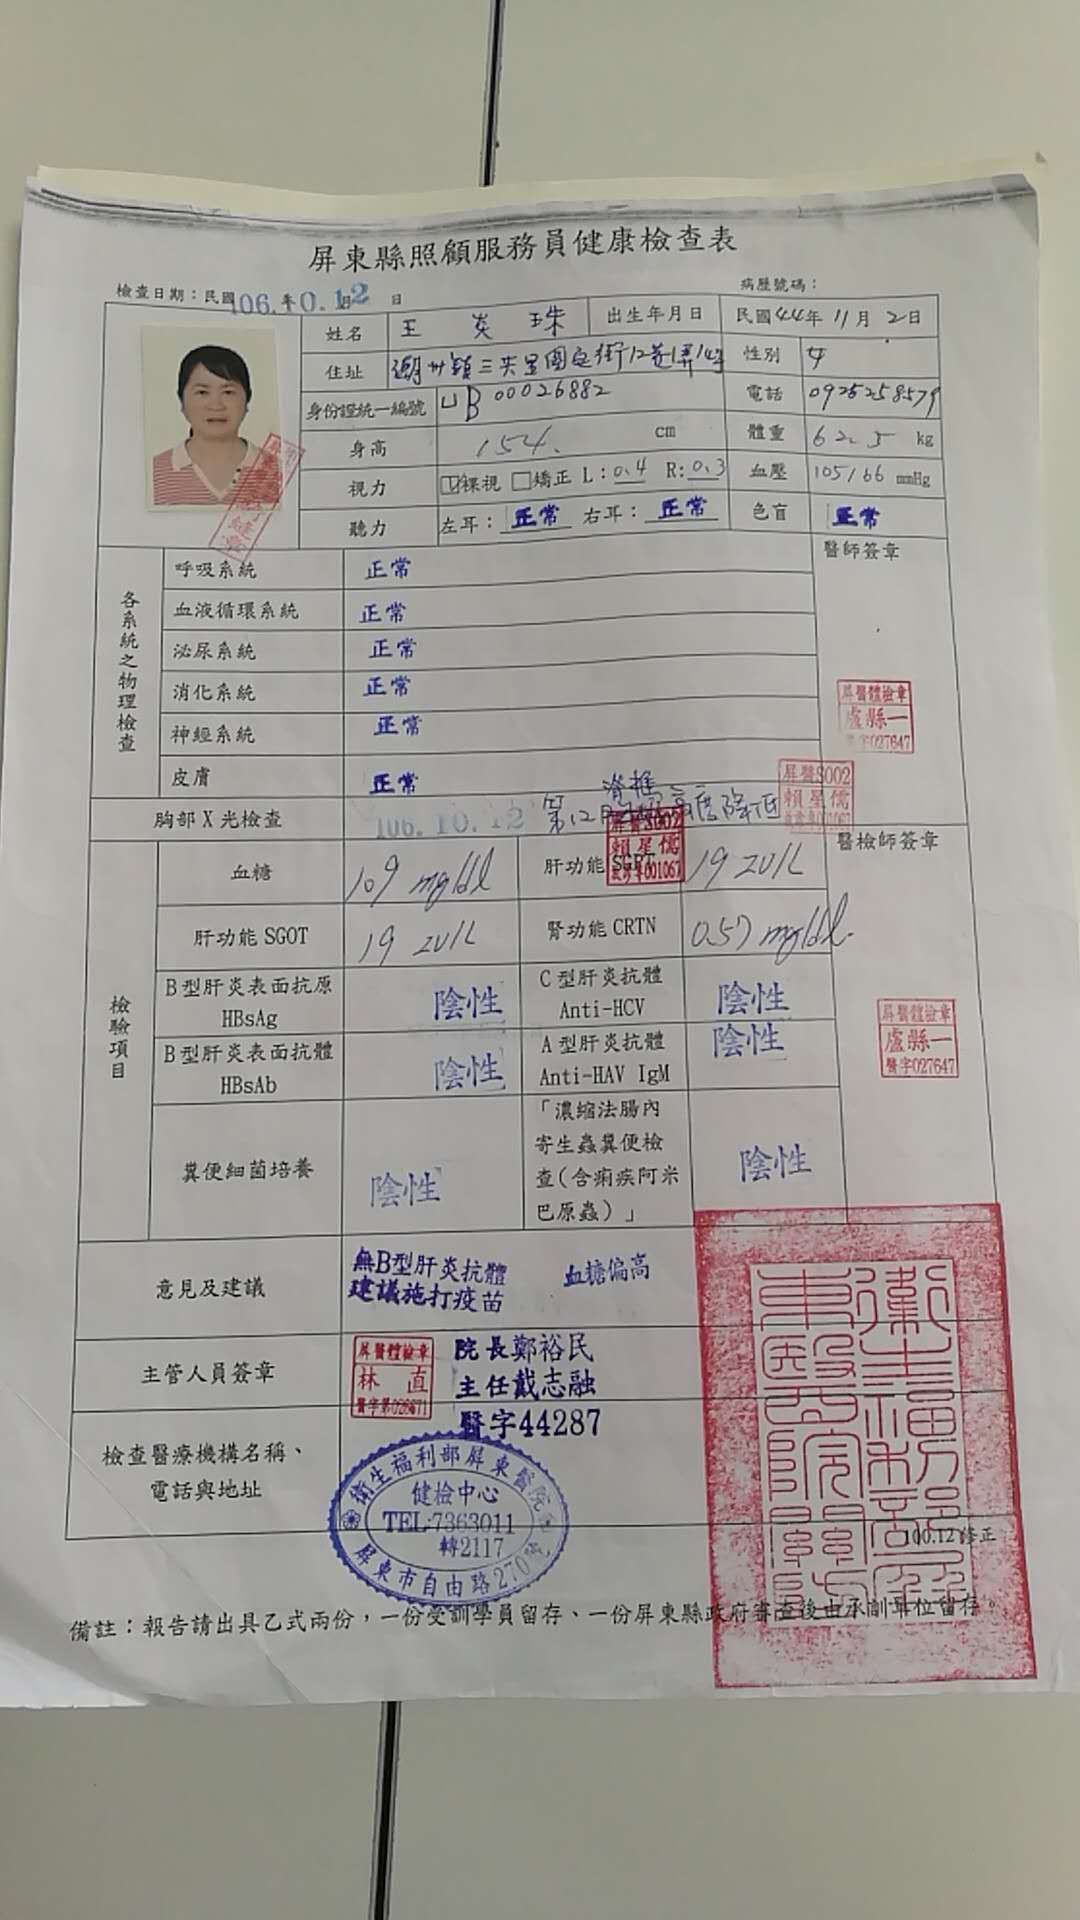 屏東縣照顧服務員健康檢查表
檢查日期：民國106.年10.12日
病歷號碼：
姓名 王炎珠 出生年月日 民國44年11月2日
住址 潮州鎮三共里圍庄街12巷1弄14号 性別 女
身份證統一編號 UB00026882 電話 0925258579
身高 154. cm 體重 62.5 kg
視力 ☑裸視 □矯正 L：0.4 R：0.3 血壓 105/66 mmHg
聽力 左耳：正常 右耳：正常 色盲 正常
各系統之物理檢查
醫師簽章
呼吸系統 正常
血液循環系統 正常
泌尿系統 正常
消化系統 正常
神經系統 正常
皮膚 正常
屏醫體檢章
盧縣一
醫字027647
胸部X光檢查 106.10.12 第12 脊椎 高度降低
屏醫S002
賴星儒
001067
屏醫S002
賴星儒
001067
檢驗項目
醫檢師簽章
血糖 109 mg/dl 肝功能 SGPT 19 IU/L
肝功能 SGOT 19 IU/L 腎功能 CRTN 0.57 mg/dl
B型肝炎表面抗原 HBsAg 陰性 C型肝炎抗體 Anti-HCV 陰性
B型肝炎表面抗體 HBsAb 陰性 A型肝炎抗體 Anti-HAV IgM 陰性
糞便細菌培養 陰性
「濃縮法腸內
寄生蟲糞便檢
查(含痢疾阿米
巴原蟲)」 陰性
屏醫體檢章
盧縣一
醫字027647
意見及建議
無B型肝炎抗體
建議施打疫苗
血糖偏高
主管人員簽章
屏醫體檢章
林直
院長鄭裕民
主任戴志融
醫字44287
檢查醫療機構名稱、
電話與地址
衛生福利部屏東醫院
健檢中心
TEL:7363011
轉2117
屏東市自由路270號
100.12修正
備註：報告請出具乙式兩份，一份受訓學員留存、一份屏東縣政府審查後由承訓單位留存。